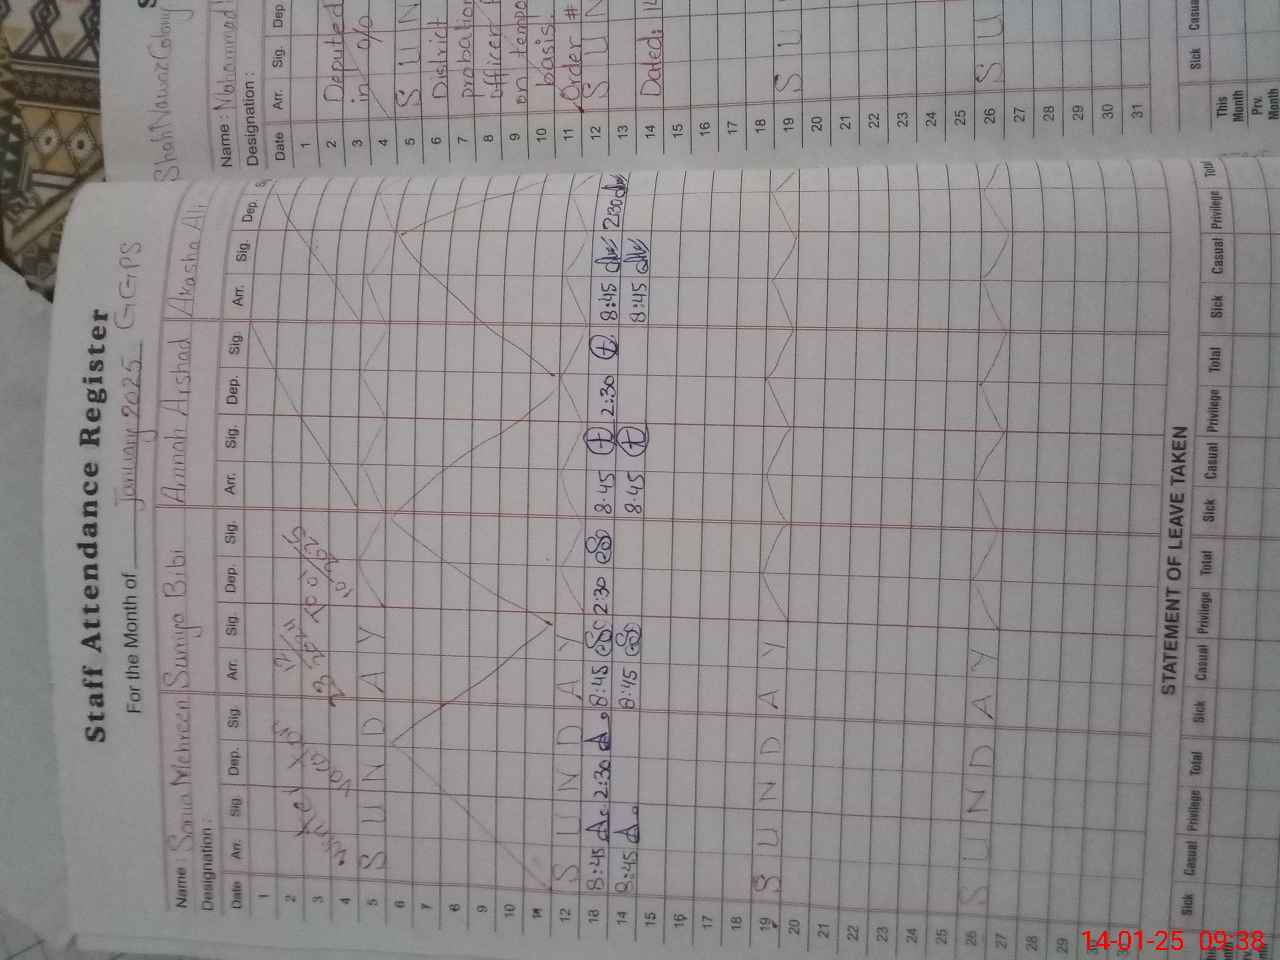 Staff Attendance Register
For the Month of January 2025 GGPS
Name: Sonia Mehreen Sumiya Bibi Amnah Arshad Akasha Ali
Designation:
Date Arr. Sig. Dep. Sig. Arr. Sig. Dep. Sig. Arr. Sig. Dep. Sig. Arr. Sig. Dep.
1
2
3
4
5 SUNDAY
6
7
8
9
10
11
12 SUNDAY
13 8:45 2:30 8:45 2:30 8:45 2:30 8:45 2:30
14 8:45 8:45 8:45 8:45
15
16
17
18
19 SUNDAY
20
21
22
23
24
25
26 SUNDAY
27
28
29
30
STATEMENT OF LEAVE TAKEN
Sick Casual Privilege Total Sick Casual Privilege Total Sick Casual Privilege Total Sick Casual Privilege Total
Shah Nawaz Colony
Name: Mohammad
Designation:
Date Arr. Sig. Dep.
1
2 Deputed
3 in o/o
4
5 SUN
6 District
7 probation
8 officer
9 on tempo
10 basis.
11 Order #
12 SUN
13
14 Dated: 14
15
16
17
18
19 SU
20
21
22
23
24
25
26 SU
27
28
29
30
31
Sick Casua
This Month
Prv. Month
14-01-25 09:38